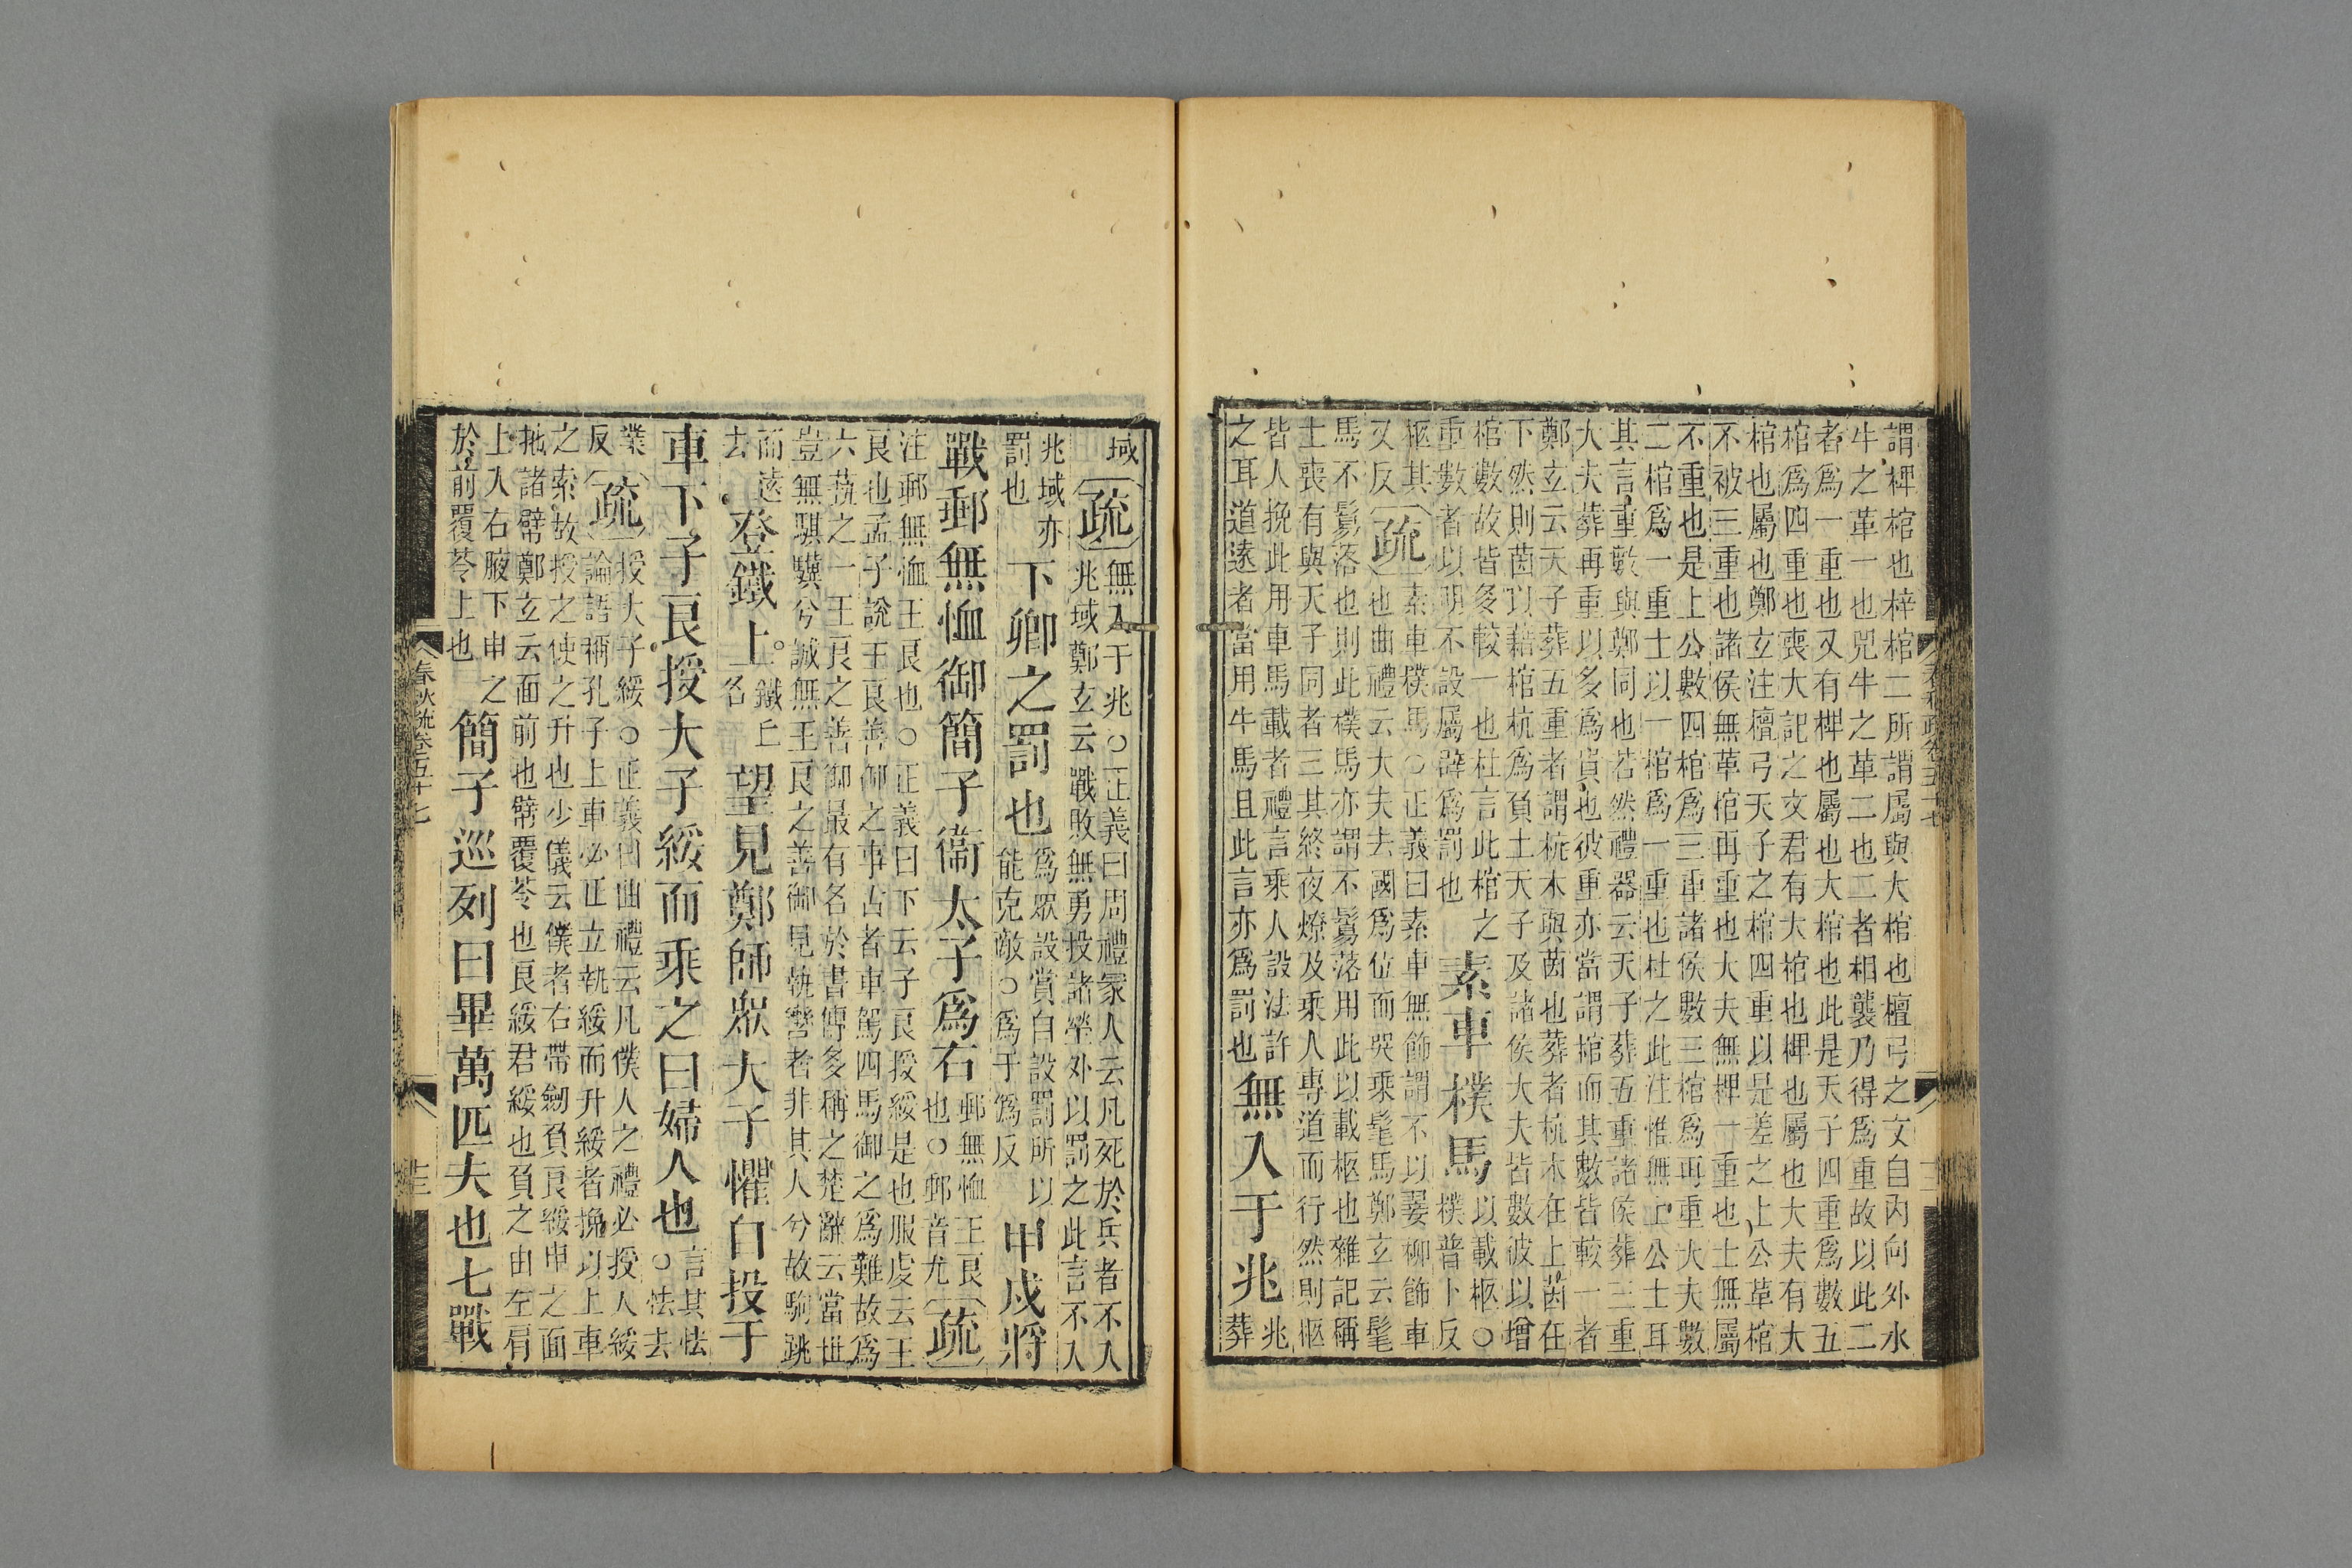 謂椑棺也梓棺二所謂屬與大棺也檀弓之文自內向外水
牛之革一也兕牛之革二也二者相襲乃得爲重故以此二
者爲一重也又有椑也屬也大棺也此是天子四重爲數五
棺爲四重也喪大記之文君有大棺也椑也屬也大夫有大
棺也屬也鄭玄注檀弓天子之棺四重以是差之上公革棺
不被三重也諸侯無革棺再重也大夫無椑一重也士無屬
不重也是上公數四棺爲三重諸侯數三棺爲再重大夫數
二棺爲一重士以一棺爲一重也杜之此注惟無上公士耳
其言重數與鄭同也若然禮器云天子葬五重諸侯葬三重
大夫葬再重以多爲貴也彼重亦當謂棺而其數皆較一者
鄭玄云天子葬五重者謂杭木與茵也葬者杭木在上茵在
下然則茵以藉棺杭爲負土天子及諸侯大夫皆數彼以增
棺數故皆多較一也杜言此棺之
重數者以明不設屬辟爲罰也
素車樸馬
以載柩○
樸普卜反
柩其
又反
疏
素車樸馬○正義曰素車無飾謂不以翣柳飾車
也曲禮云大夫去國爲位而哭乘髦馬鄭玄云髦
馬不鬄落也則此樸馬亦謂不鬄落用此以載柩也雜記稱
士喪有與天子同者三其終夜燎及乘人專道而行然則柩
皆人挽此用車馬載者禮言乘人設法許
之耳道遠者當用牛馬且此言亦爲罰也
無入于兆
兆
葬
域
疏
無入于兆○正義曰周禮冢人云凡死於兵者不入
兆域鄭玄云戰敗無勇投諸塋外以罰之此言不入
兆域亦
罰也
下卿之罰也
爲眾設賞自設罰所以
能克敵○爲于僞反
甲戌將
戰郵無恤御簡子衞太子爲右
郵無恤王良
也○郵音尤
疏
注郵無恤王良也○正義曰下云子良授綏是也服虔云王
良也孟子說王良善御之事古者車駕四馬御之爲難故爲
六藝之一王良之善御最有名於書傳多稱之楚辭云當世
豈無騏驥兮誠無王良之善御見執轡者非其人兮故駒跳
而遠
去
登鐵上
鐵丘
名
望見鄭師眾大子懼自投于
車下子良授大子綏而乘之曰婦人也
言其怯
○怯去
業
反
疏
授大子綏○正義曰曲禮云凡僕人之禮必授人綏
論語稱孔子上車必正立執綏而升綏者挽以上車
之索故授之使之升也少儀云僕者右帶劒負良綏申之面
拖諸幦鄭玄云面前也幦覆苓也良綏君綏也負之由左肩
上入右腋下申之
於前覆苓上也
簡子巡列曰畢萬匹夫也七戰
春秋疏卷五十七